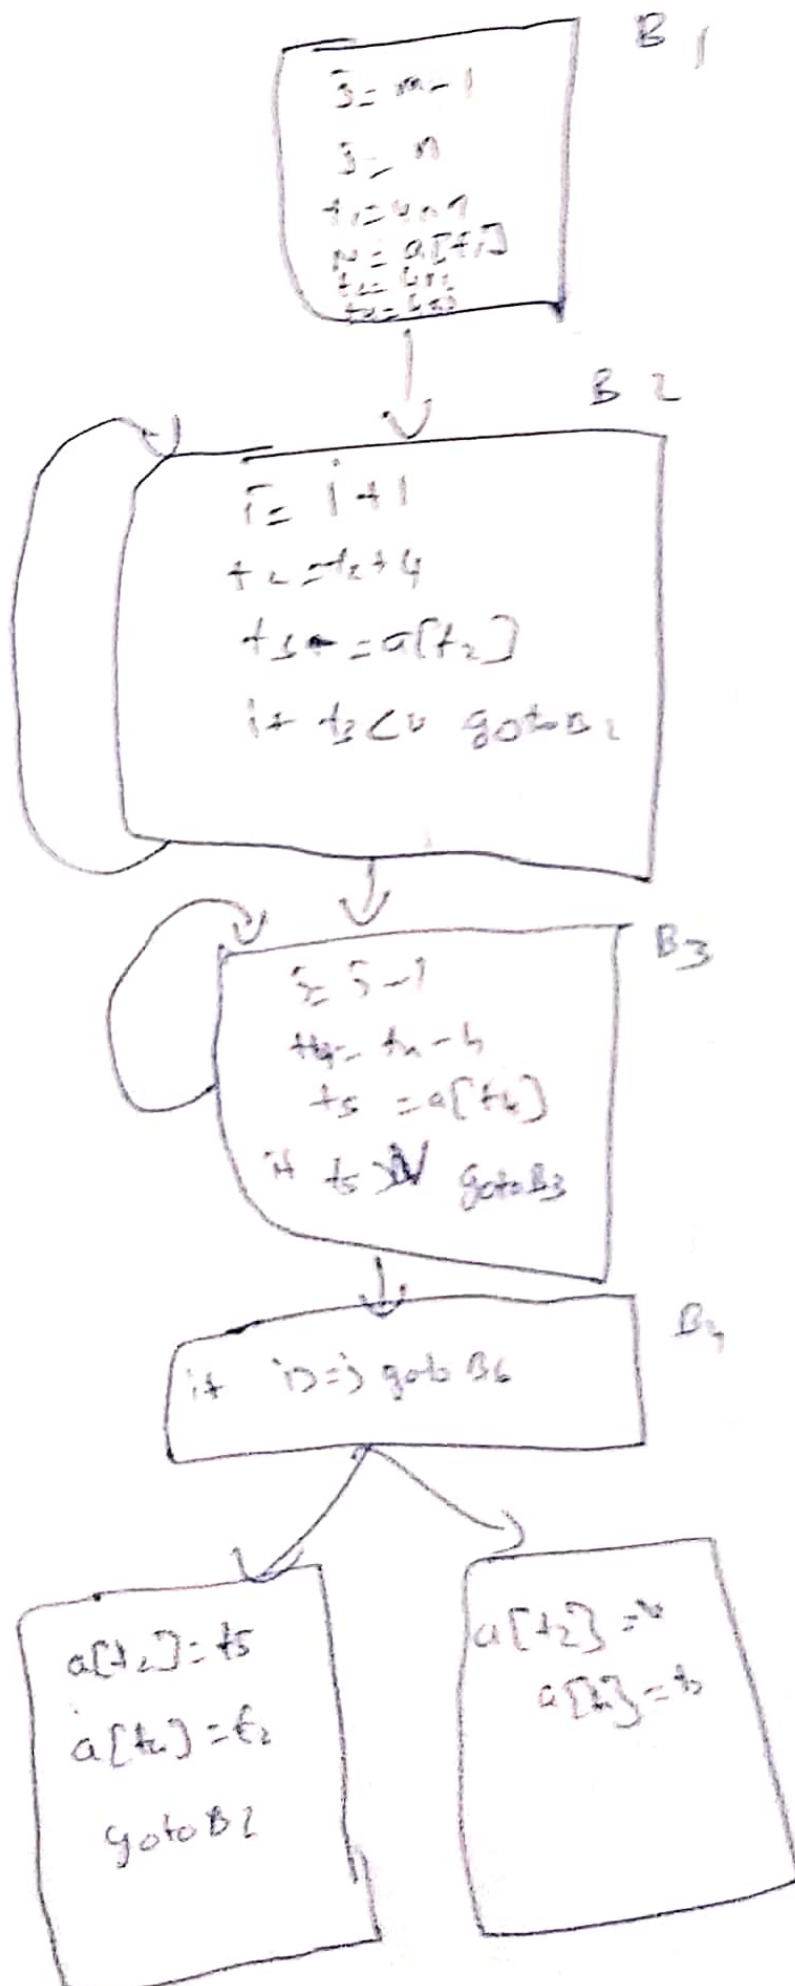 B1
j = m-1
j = n
t1 = 4*n
v = a[t1]
t2 = 4*i
t4 = 4*j
B2
i = i+1
t2 = t2+4
t3 = a[t2]
if t3 < v goto B2
B3
j = j-1
t4 = t4-4
t5 = a[t4]
if t5 > v goto B3
B4
if i>=j goto B6
a[t2] = t5
a[t4] = t2
goto B2
a[t2] = v